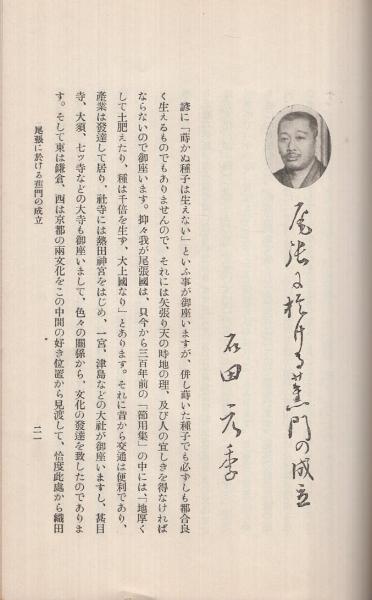 尾張に於ける蕉門の成立
石田元季
諺に「蒔かぬ種子は生えない」といふ事が御座いますが、併し蒔いた種子でも必ずしも都合良
く生えるものでもありませんので、それには矢張り天の時地の理、及び人の宜しきを得なければ
ならないので御座います。抑々我が尾張國は、只今から三百年前の「節用集」の中には、「地厚く
して土肥えたり、種は千倍を生ず、大上國なり」とあります。それに昔から交通は便利であり、
產業は發達して居り、社寺には熱田神宮をはじめ、一宮、津島などの大社が御座いますし、甚目
寺、大須、七ッ寺などの大寺も御座いまして、色々の關係から、文化の發達を致したのでありま
す。そして東は鎌倉、西は京都の兩文化をこの中間の好き位置から見渡して、恰度此處から織田
尾張に於ける蕉門の成立
二一